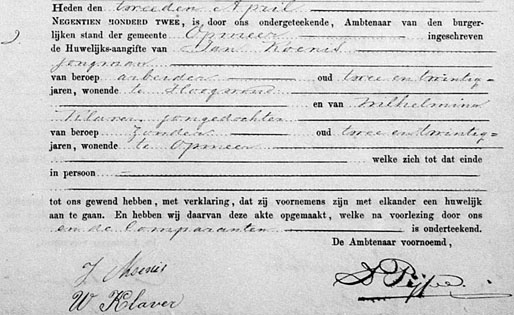 Heden den tweeden April
NEGENTIEN HONDERD TWEE, is door ons ondergeteekende, Ambtenaar van den burger-
lijken stand der gemeente Opmeer ingeschreven
de Huwelijks-aangifte van Jan Koenis
jongman
van beroep arbeider oud twee en twintig
jaren, wonende te Hoogwoud
en van Wilhelmina
Klaver jongedochter
van beroep Zonder oud twee en twintig
jaren, wonende te Opmeer
welke zich tot dat einde
in persoon
tot ons gewend hebben, met verklaring, dat zij voornemens zijn met elkander een huwelijk
aan te gaan. En hebben wij daarvan deze akte opgemaakt, welke na voorlezing door ons
en de Comparanten is onderteekend.
De Ambtenaar voornoemd,
J Koenis
W Klaver